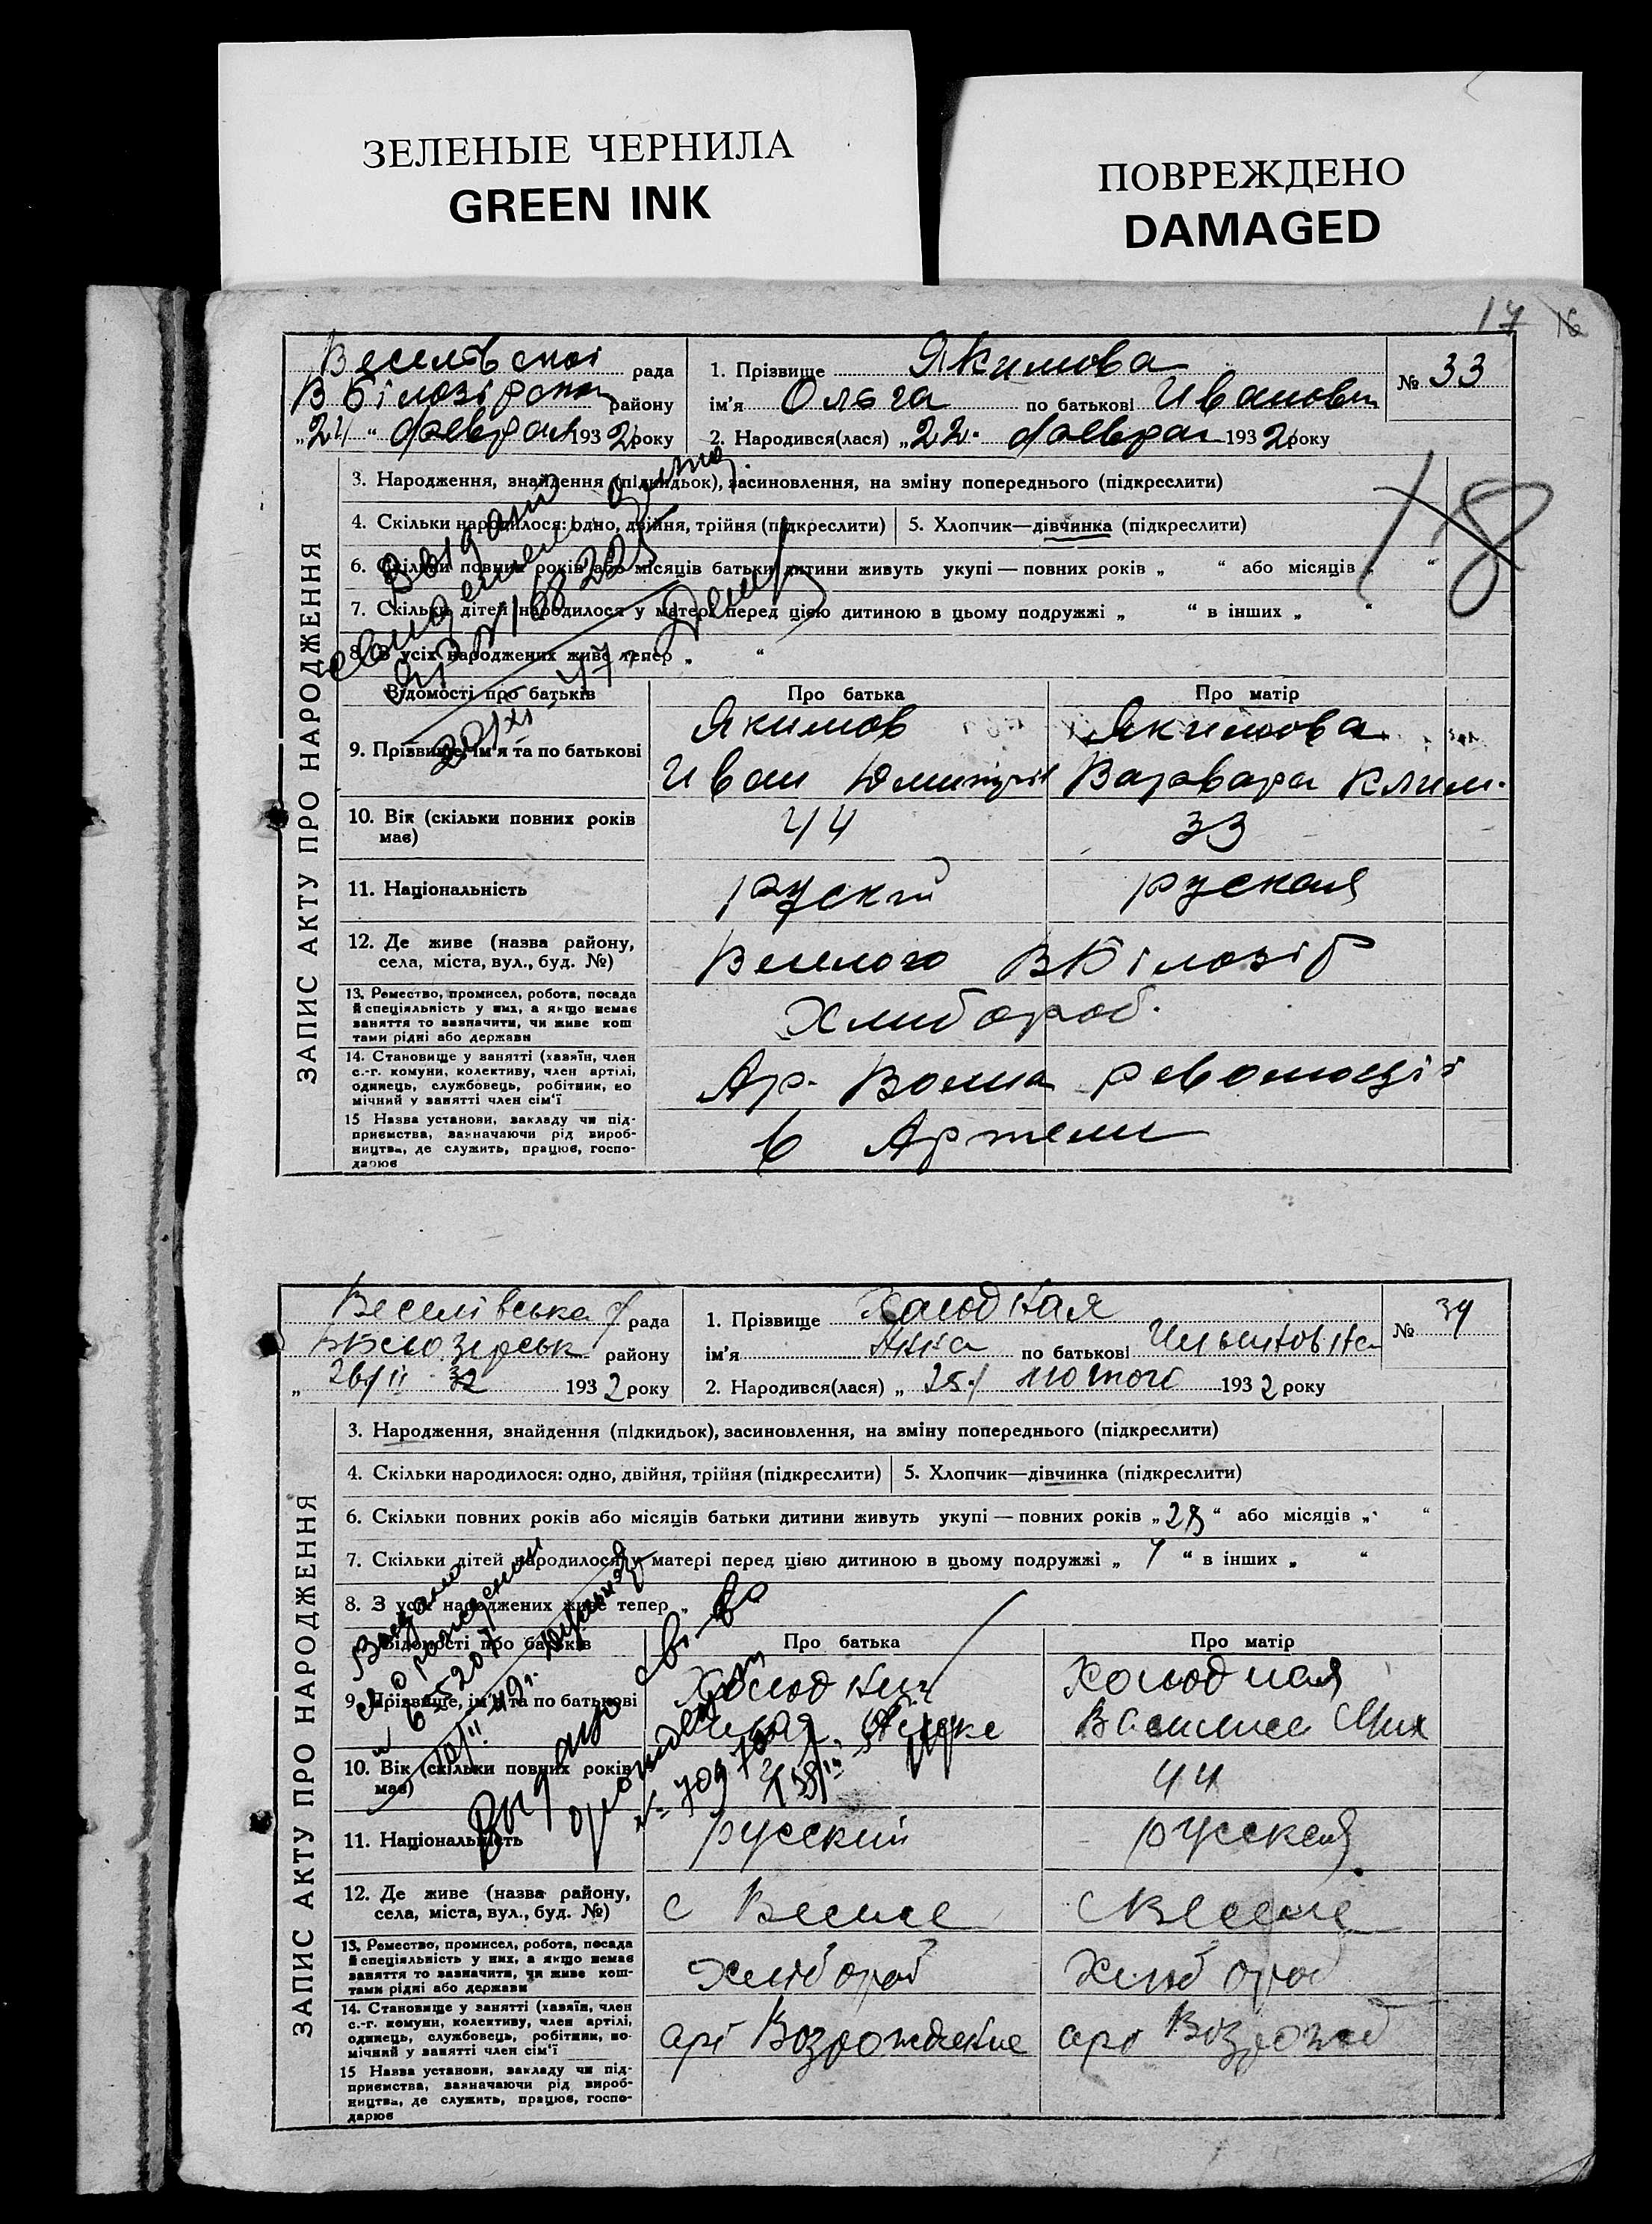 ЗЕЛЕНЫЕ ЧЕРНИЛА
GREEN INK
ПОВРЕЖДЕНО
DAMAGED
17 16
рада
1. Прізвище Якимова
№ 33
В Білозірськ району
ім'я Ольга по батькові Ивановн
"24" феврал 1932 року
2. Народився(лася) "22" феврал 1932 року
18
ЗАПИС АКТУ ПРО НАРОДЖЕННЯ
3. Народження, знайдення (підкидьок), засиновлення, на зміну попереднього (підкреслити)
4. Скільки народилося: одно, двійня, трійня (підкреслити)
5. Хлопчик—дівчинка (підкреслити)
6. Скільки повних років або місяців батьки дитини живуть укупі — повних років „ “ або місяців „ “
7. Скільки дітей народилося у матері перед цією дитиною в цьому подружжі „ “ в інших „ “
8. З усіх народжених живе тепер „ “
Відомості про батьків
Про батька
Про матір
9. Прізвище, ім'я та по батькові
Якимов
Иван
Якимова
Варвара Клим.
10. Вік (скільки повних років має)
44
33
11. Національність
рускій
руская
12. Де живе (назва району, села, міста, вул., буд. №)
Веселого ВБілозір
13. Ремество, промисел, робота, посада й спеціяльність у них, а якщо немає заняття то зазначити, чи живе коштами рідні або держави
Хлибороб.
14. Становище у занятті (хазяїн, член с.-г. комуни, колективу, член артілі, одинець, службовець, робітник, помічний у занятті член сім'ї
Ар. Волна революціі
15 Назва установи, закладу чи підприємства, зазначаючи рід виробництва, де служить, працює, господарює
в Артели
Веселівська рада
1. Прізвище Холодная
№ 34
району
ім'я Анна по батькові
1932 року
2. Народився(лася) „ 25/ лютого 1932 року
ЗАПИС АКТУ ПРО НАРОДЖЕННЯ
3. Народження, знайдення (підкидьок), засиновлення, на зміну попереднього (підкреслити)
4. Скільки народилося: одно, двійня, трійня (підкреслити)
5. Хлопчик—дівчинка (підкреслити)
6. Скільки повних років або місяців батьки дитини живуть укупі — повних років „ “ або місяців „ “
7. Скільки дітей народилося у матері перед цією дитиною в цьому подружжі „ “ в інших „ “
8. З усіх народжених живе тепер „
Відомості про батьків
Про батька
Про матір
9. Прізвище, ім'я та по батькові
Холодная
Василиса Мих
10. Вік (скільки повних років має)
44
11. Національність
русский
русская
12. Де живе (назва району, села, міста, вул., буд. №)
с Веселе
с Веселе
13. Ремество, промисел, робота, посада й спеціяльність у них, а якщо немає заняття то зазначити, чи живе коштами рідні або держави
хлібороб
хлібороб
14. Становище у занятті (хазяїн, член с.-г. комуни, колективу, член артілі, одинець, службовець, робітник, помічний у занятті член сім'ї
арт Возрождение
арт Возрожд
15 Назва установи, закладу чи підприємства, зазначаючи рід виробництва, де служить, працює, господарює